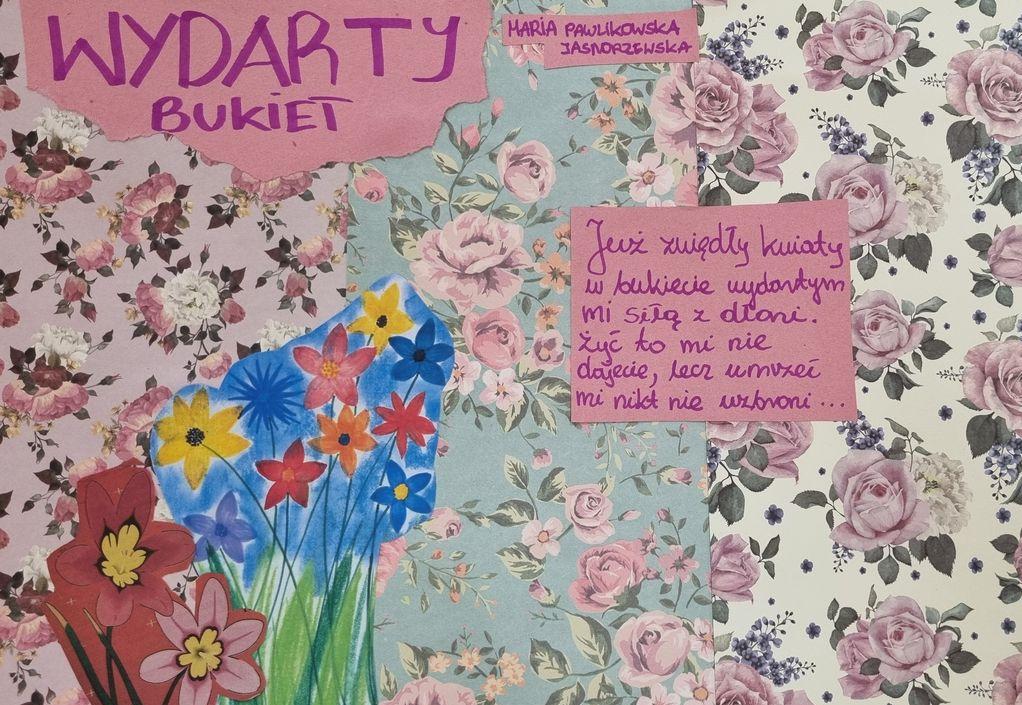 WYDARTY
BUKIET
MARIA PAWLIKOWSKA
JASNORZEWSKA
Już zwiędły kwiaty
w bukiecie wydartym
mi siłą z dłoni.
Żyć to mi nie
dajecie, lecz umrzeć
mi nikt nie wzbroni...